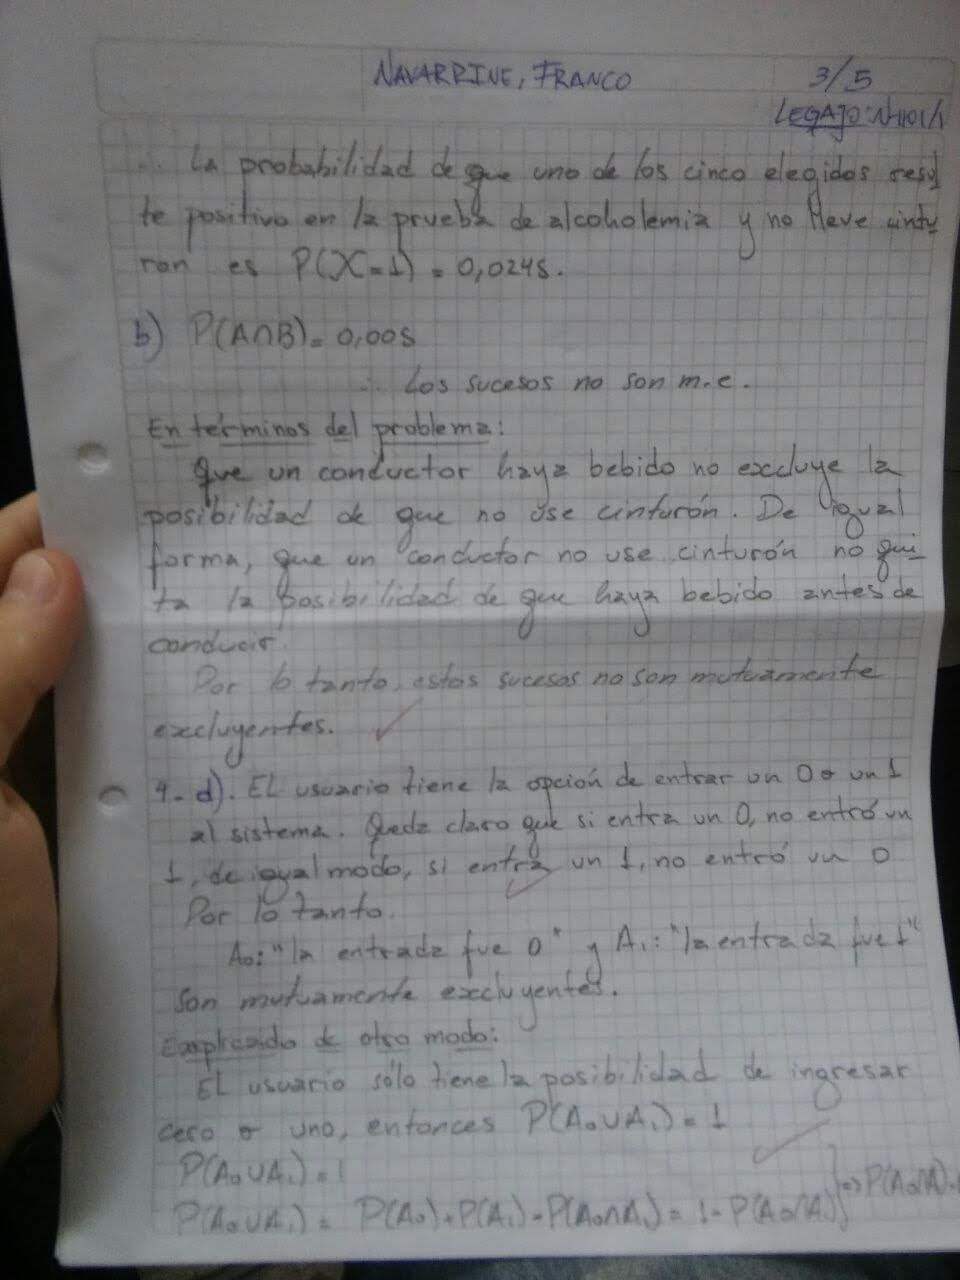 NAVARRINE, FRANCO
3/5
LEGAJO:
∴ La probabilidad de que uno de los cinco elegidos resul
te positivo en la prueba de alcoholemia y no lleve cintu
ron es P(X=1) = 0,0245.
b) P(A∩B) = 0,005
∴ Los sucesos no son m.e.
En términos del problema:
Que un conductor haya bebido no excluye la
posibilidad de que no use cinturón. De igual
forma, que un conductor no use cinturón no qui
ta la posibilidad de que haya bebido antes de
conducir.
Por lo tanto, estos sucesos no son mutuamente
excluyentes.
4- d). EL usuario tiene la opción de entrar un 0 o un 1
al sistema. Queda claro que si entra un 0, no entró un
1, de igual modo, si entra un 1, no entró un 0
Por lo tanto.
A₀: "la entrada fue 0" y A₁: "la entrada fue 1"
son mutuamente excluyentes.
Explicado de otro modo:
EL usuario sólo tiene la posibilidad de ingresar
cero o uno, entonces P(A₀∪A₁) = 1
P(A₀∪A₁) = 1
P(A₀∪A₁) = P(A₀) + P(A₁) - P(A₀∩A₁) = 1 - P(A₀∩A₁) } => P(A₀∩A₁)